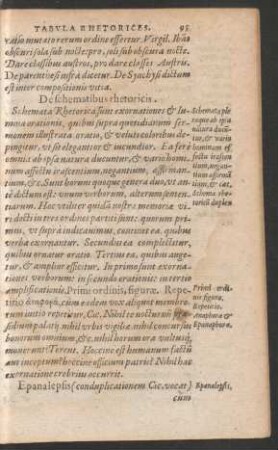 TABULA RHETORICES. 95
ratio mutato rerum ordine effertur. Virgil. Ibāt
obscuri sola sub nocte: pro, soli sub obscura nocte.
Dare classibus austros, pro dare classes Austris.
De parenthesi infra dicetur. De Synchysi dictum
est inter compositionis vitia.
De schematibus rhetoricis.
Schemata Rhetorica sunt exornationes & lu-
mina orationis, quibus supra quotidianum ser-
monem illustratur oratio, & velut coloribus de-
pingitur, vt sit elegantior & iucundior. Ea ferè
omnia ab ipsa natura ducuntur, & vario homi-
num affectu irascentium, negantium, affirman-
tium, &c. Sunt horum quoque genera duo, vt an-
te dictum est: vnum verborum, alterum senten-
tiarum. Hoc vtilius quidā nostræ memoria vi-
ri docti in tres ordines partiti sunt: quorum pri-
mum, vt supra indicauimus, continet ea, quibus
verba exornantur. Secundus ea complectitur,
quibus ornatur oratio. Tertius ex, quibus auge-
tur, & amplior efficitur. In primo sunt exornatio-
nes verborum: in secundo orationis: in tertio
amplificationis. Primi ordinis, figura. Repe-
titio ἀναφορά, cum eodem vox aliquot membro-
rum initio repetitur. Cic. Nihil te nocturnū præ-
sidium palatij, nihil vrbis vigiliæ, nihil concursus
bonorum omnium, & c. nihil horum ora vultusq;
mouerunt? Terent. Hoccine est humanum factū
aut inceptum? hoccine officium patris? Nihil hac
exornatione crebrius occurrit.
Epanalepsis (conduplicationem Cic. vocat)
cùm
Schemata ple-
raque ab ipsa
natura ducun-
tur, & vario
hominum
affectu
Schema rhe-
toricū duplex
Primi ordi-
nis figura.
Repetitio,
Anaphora &
Epanaphora.
Epanalepsis,